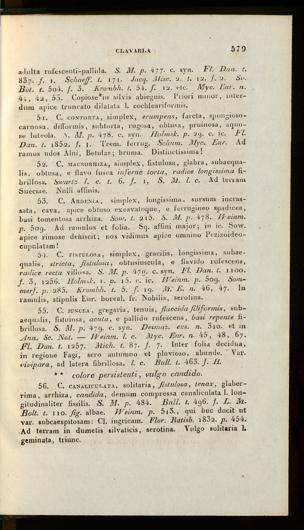 CLAVARIA 579
adulta rufescenti-pallida. S. M. p. 477. c. syn. Fl. Dan. t.
837. f. 1. Schaeff. t. 171. Jacq. Misc. 2. t. 12. f. 2. Sv.
Bot. t. 504. f. 3. Krombh. t. 54. f. 12. etc. Myc. Eur. n.
41, 42, 53. Copiose in silvis abiegnis. Priori minor, inter-
dum apice truncato dilatata l. cochleariformis.
51. C. CONTORTA, simplex, erumpens, farcta, spongioso-
carnosa, difformis, subtorta, rugosa, obtusa, pruinosa, aquo-
se luteola. S. M. p. 478. c. syn. Holmsk. p. 29. c. ic. Fl.
Dan. t. 1852. f. 1. Trem. ferrug. Schum. Myc. Eur. Ad
ramos udos Alni, Betulae; bruma. Distinctissima!
52. C. MACRORRHIZA, simplex, fistulosa, glabra, subaequa-
lis, obtusa, e flavo fusca inferne torta, radice longissima fi-
brillosa. Swartz l. c. t. 6. f. 1, S. M. l. c. Ad terram
Sueciae. Nulli affinis.
53. C. ARDENIA, simplex, longissima, sursum incras-
sata, cava, apice obtuso excavatoque, e ferrugineo spadicea,
basi tomentosa arrhiza. Sow. t. 215. S. M. p. 478. Weinm.
p. 509. Ad ramulos et folia. Sq. affini major; in ic. Sow.
apice rimose dehiscit; nos vidimus apice omnino Pezizoideo-
cupulatam!
54. C. FISTULOSA, simplex, gracilis, longissima, subae-
qualis, stricta, fistulosa, obtusiuscula, e flavido rufescens,
radice recta villosa. S. M. p. 479. c. syn. Fl. Dan. t. 1100.
f. 3, 1256. Holmsk. 1. p. 15. c. ic. Weinm. p. 509. Som-
merf. p. 285. Krombh. t. 5. f. 19. M. E. n. 46, 47. In
ramulis, stipulis Eur. boreal. fr. Nobilis, serotina.
55. C. JUNCEA, gregaria, tenuis, flaccida filiformis, sub-
aequalis, fistulosa, acuta, e pallido rufescens, basi repente fi-
brillosa. S. M. p. 479. c. syn. Desmaz. exs. n. 310. et in
Ann. Sc. Nat. — Weinm. l. c. Myc. Eur. n. 45, 48, 67.
Fl. Dan. t. 1257. Mich. t. 87. f. 7. Inter folia decidua,
in regione Fagi, sero autumno et pluvioso, abunde. Var.
vivipara, ad latera fibrillosa. l. c. Bull. t. 463. f. H.
** colore persistenti, vulgo candido.
56. C. CANALICULATA, solitaria, fistulosa, tenax, glaber-
rima, arrhiza, candida, demum compressa canaliculata l. lon-
gitudinaliter fissilis. S. M. p. 484. Bull. t. 496. f. L. M.
Bolt. t. 110. fig. albae. Weinm. p. 513., qui huc ducit ut
var. subcaespitosam: Cl. ingricam. Flor. Ratisb. 1832. p. 454.
Ad terram in dumetis silvaticis, serotina. Vulgo solitaria l.
geminata, triunc.